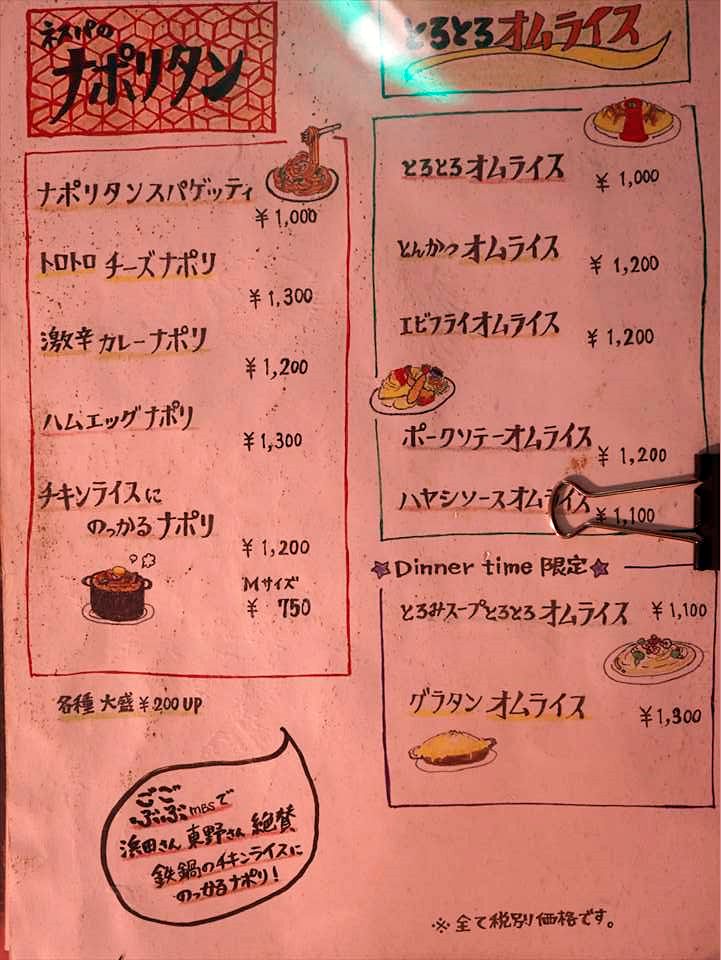 ネスパの
ナポリタン
ナポリタンスパゲッティ
¥1,000
トロトロ チーズナポリ
¥1,300
激辛カレーナポリ
¥1,200
ハムエッグナポリ
¥1,300
チキンライスに
のっかるナポリ
¥1,200
Mサイズ
¥ 750
各種 大盛 ¥200 UP
ごご
ぶぶ MBSで
浜田さん 東野さん 絶賛
鉄鍋のチキンライスに
のっかるナポリ!
とろとろオムライス
とろとろオムライス ¥1,000
とんかつオムライス ¥1,200
エビフライオムライス ¥1,200
ポークソテーオムライス ¥1,200
ハヤシソースオムライス ¥1,100
★Dinner time 限定★
とろみスープとろとろオムライス ¥1,100
グラタンオムライス ¥1,300
※全て税別価格です。